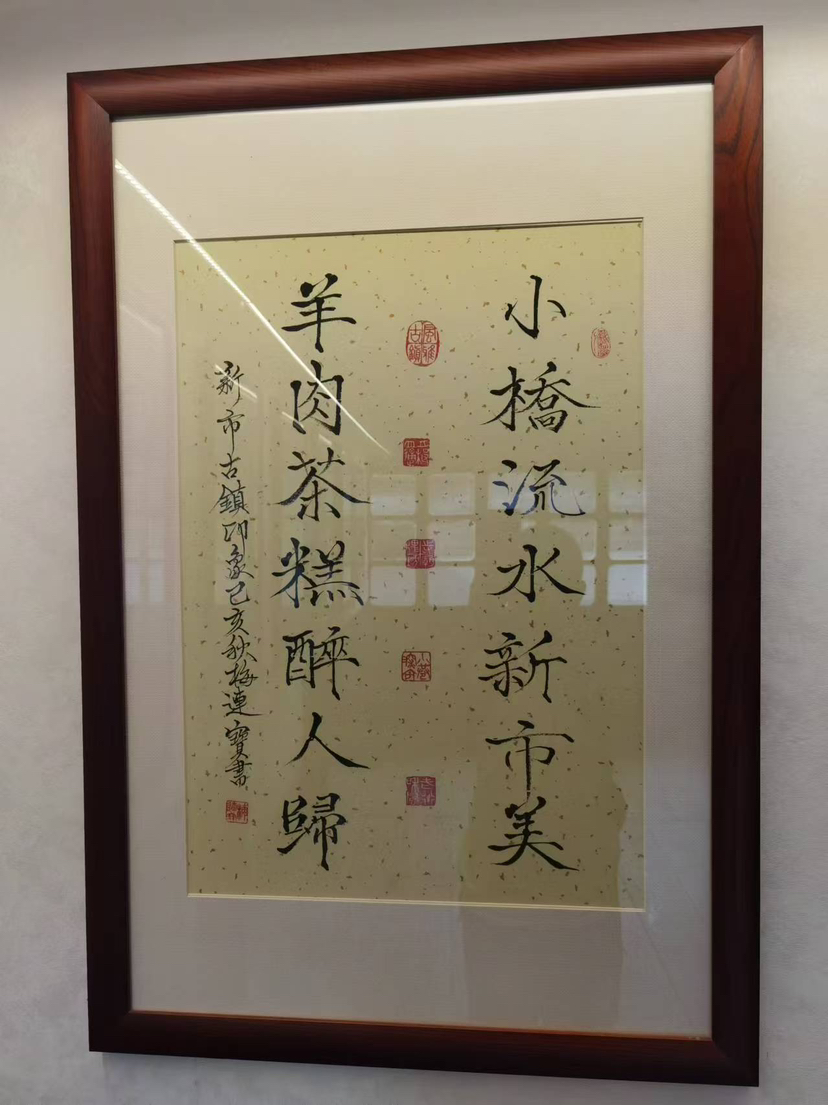 小橋流水新市美
羊肉茶糕醉人歸
新市古鎮印象己亥秋梅連寶書
風雅古鎮